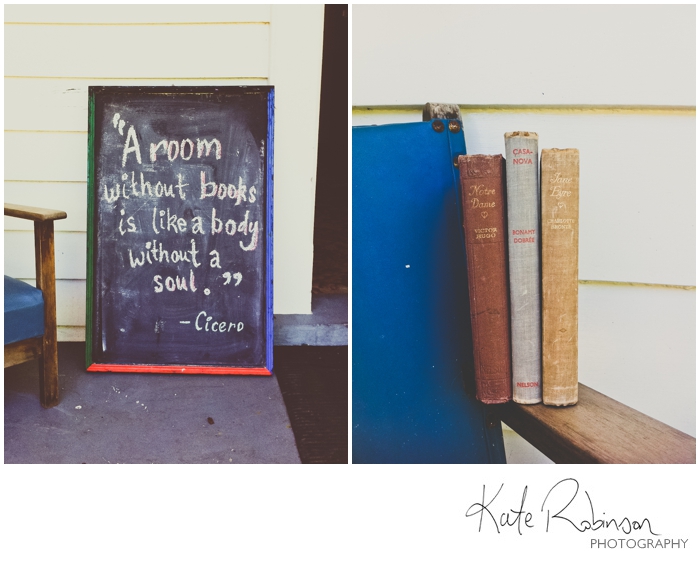 "A room
without books
is like a body
without a
soul."
-Cicero
Notre
Dame
VICTOR
HUGO
CASA-
NOVA
BONAMY
DOBRÉE
NELSON
Jane
Eyre
CHARLOTTE
BRONTE
Kate Robinson
PHOTOGRAPHY